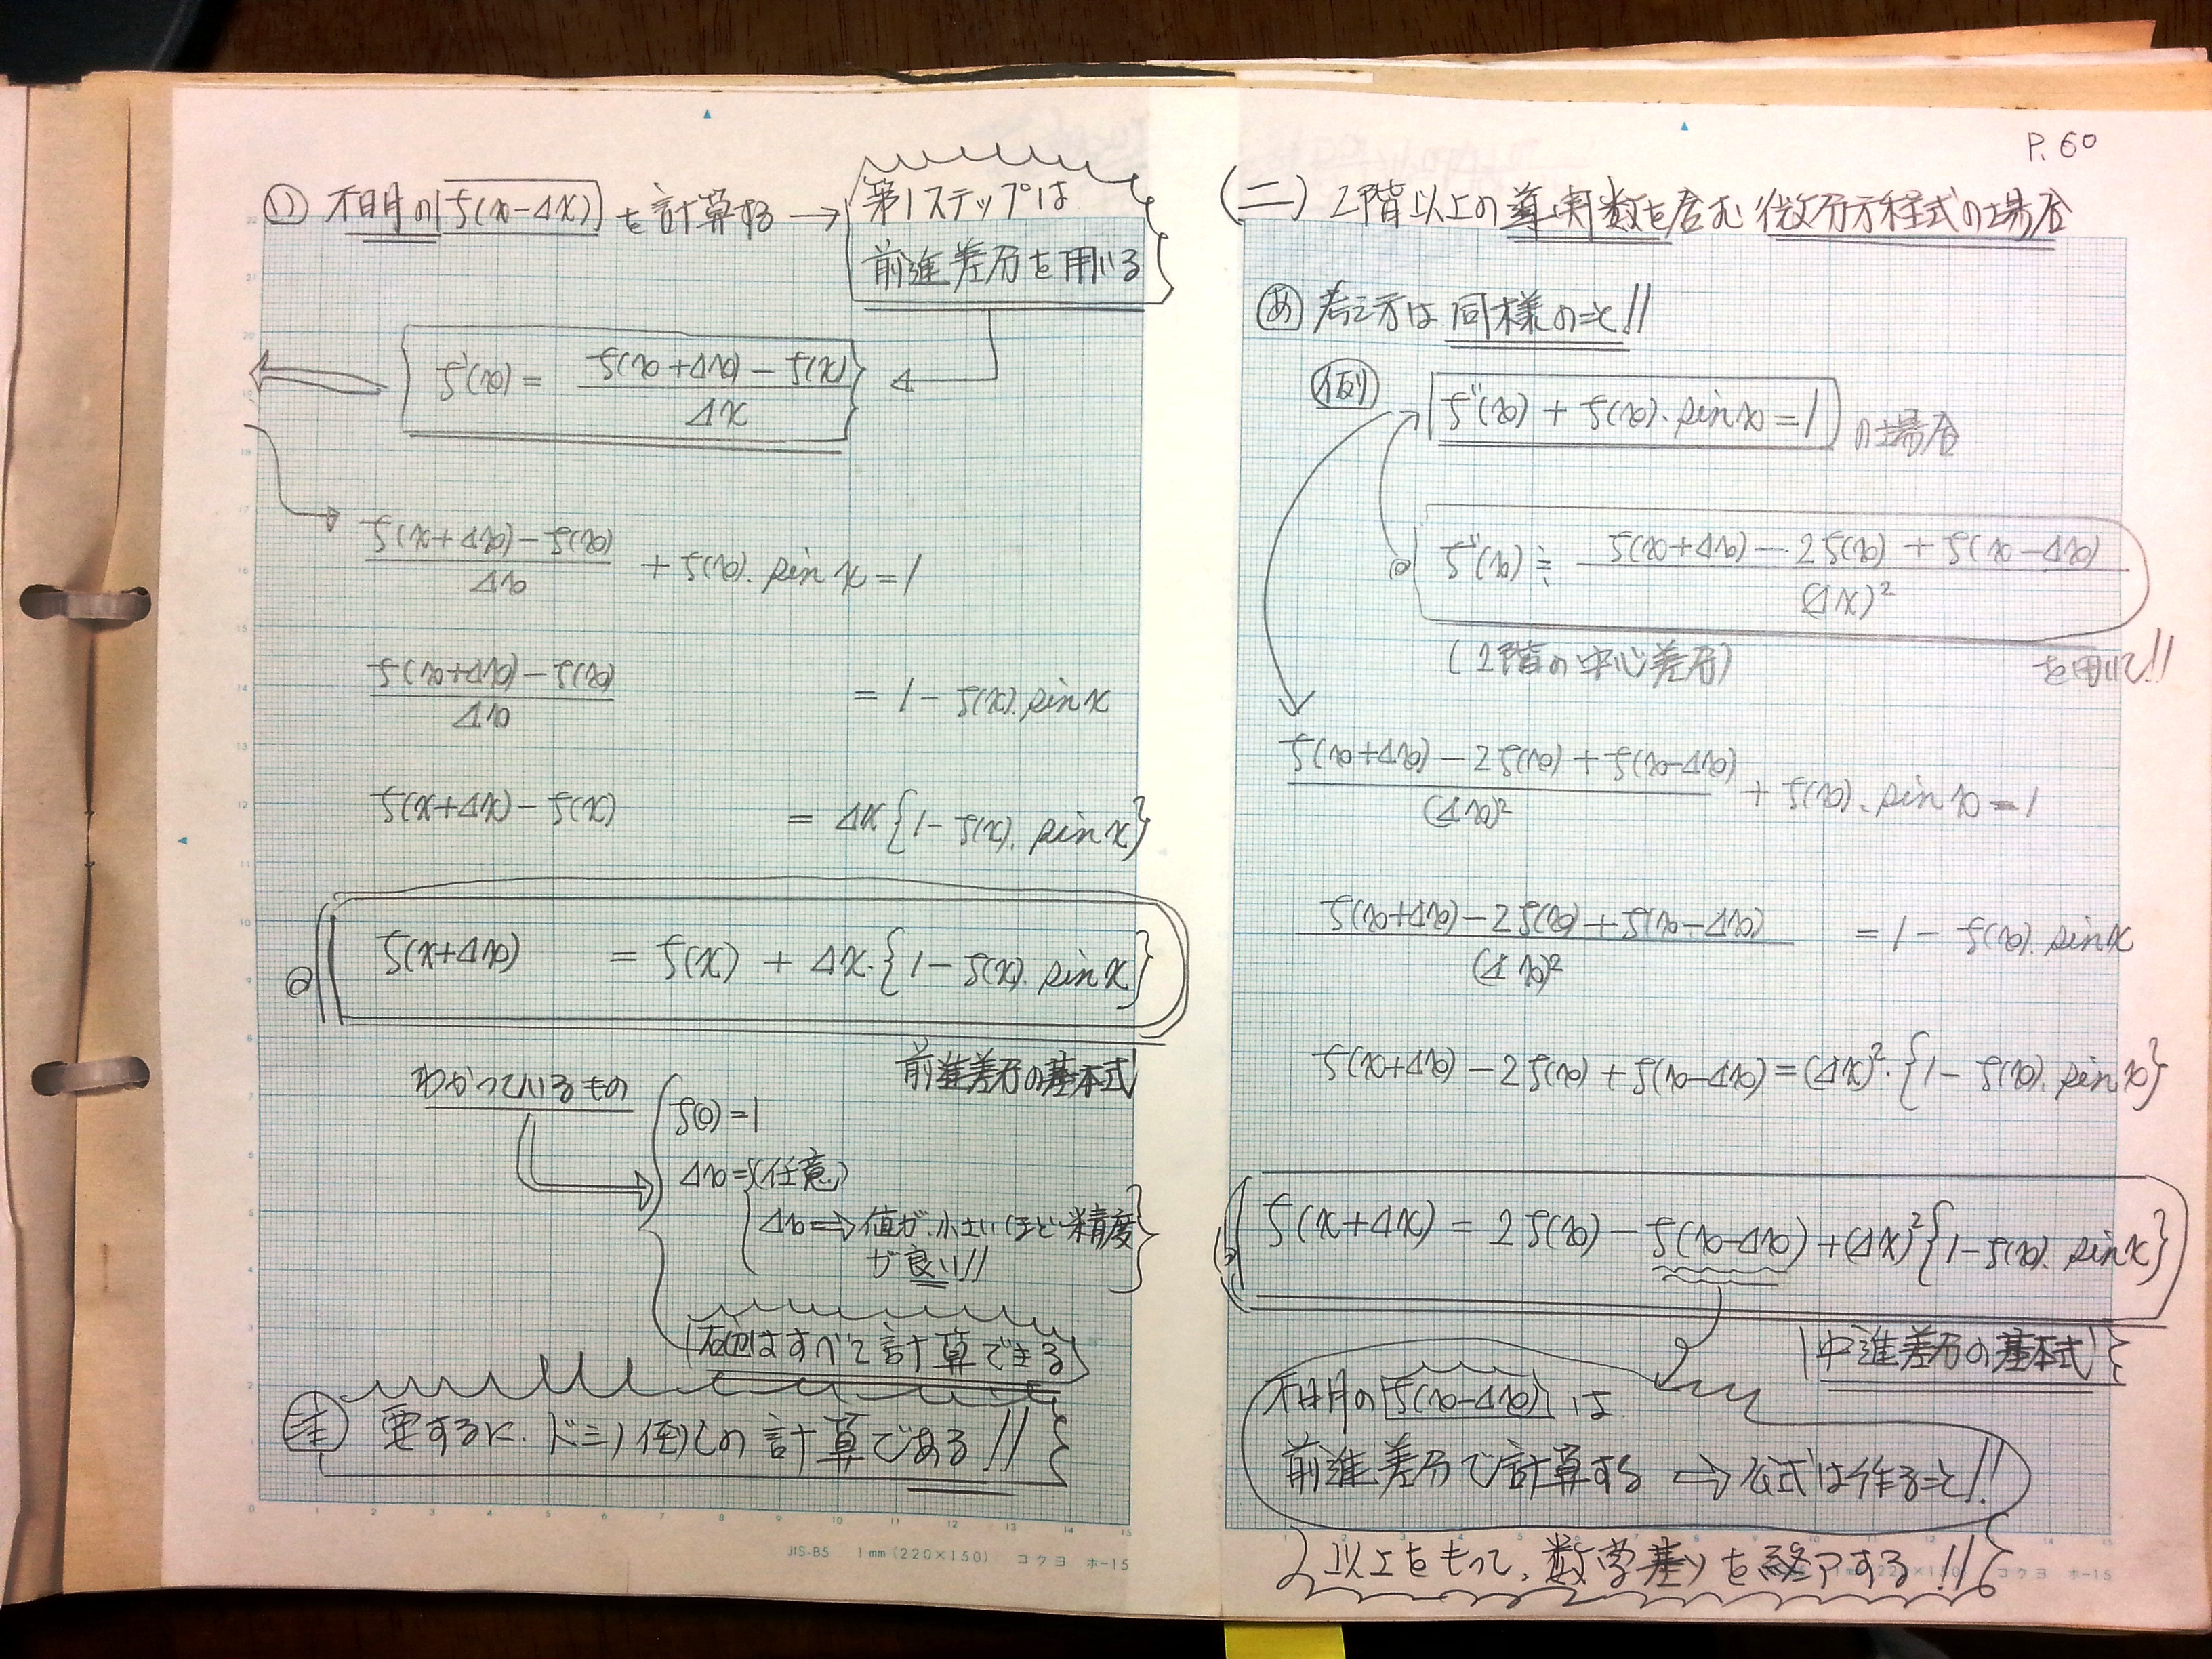 (い) 不明の f(x-Δx) を計算する → 第1ステップは
前進差分を用いる
f'(x) = (f(x+Δx) - f(x)) / Δx
(f(x+Δx) - f(x)) / Δx + f(x)・sin x = 1
(f(x+Δx) - f(x)) / Δx = 1 - f(x)・sin x
f(x+Δx) - f(x) = Δx{1 - f(x)・sin x}
◎ f(x+Δx) = f(x) + Δx・{1 - f(x)・sin x}
前進差分の基本式
わかっているもの
f(0) = 1
Δx = (任意)
Δx ⇒ 値が小さいほど精度
が良い!!
右辺はすべて計算できる
㊟ 要するに、ドミノ倒しの計算である!!
JIS-B5 1mm (220×150) コクヨ ホ-15
P.60
(二) 2階以上の導関数を含む微分方程式の場合
(あ) 考え方は同様のこと!!
(例) f''(x) + f(x)・sin x = 1 の場合
◎ f''(x) ≒ (f(x+Δx) - 2f(x) + f(x-Δx)) / (Δx)²
(2階の中心差分) を用いて!!
(f(x+Δx) - 2f(x) + f(x-Δx)) / (Δx)² + f(x)・sin x = 1
(f(x+Δx) - 2f(x) + f(x-Δx)) / (Δx)² = 1 - f(x)・sin x
f(x+Δx) - 2f(x) + f(x-Δx) = (Δx)²・{1 - f(x)・sin x}
◎ f(x+Δx) = 2f(x) - f(x-Δx) + (Δx)²{1 - f(x)・sin x}
中進差分の基本式
不明の f(x-Δx) は
前進差分で計算する ⇒ 公式は作ること!!
以上をもって、数学基礎を終了する!!
コクヨ ホ-15